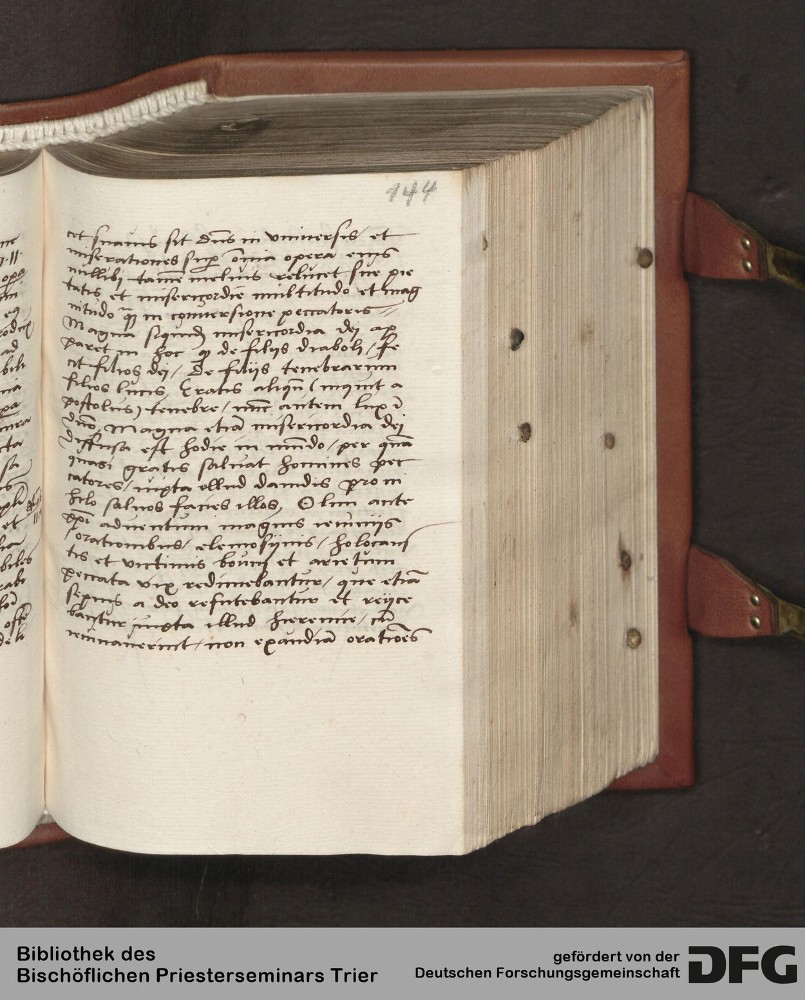 144
cet suauis sit dn̄s in vniuersis et
miserationes sup̱ oīa opera eius
nullibi tamē melius relucet siue pie
tatis et misericordie multitudo et mag
nitudo q̄ in conuersione peccatoris
Magna siquidē misericordia dei ap
paret in hoc q̱ de filijs diaboli / fe
cit filios dei / De filijs tenebrarum
filios lucis, Eratis aliqn̄ (inquit a
postolus) tenebre / nunc autem lux ī
dn̄o, Magna etiā misericordia dei
diffusa est hodie in mūdo / per quā
quasi gratis saluat homines pec
catores / iuxta illud dauidis pro ni
hilo saluos facies illos, Olim ante
xp̄i aduentum magnis ieiunijs
/ orationibus / elemosijnis / holocaus
tis et victimis boum et arietum
peccata vix redimebantur / que etiā
sepius a deo refutebantur et reijce
bantur iuxta illud hieremie / cū
ieiunauerint / non exaudiā orationēs
Bibliothek des
Bischöflichen Priesterseminars Trier
gefördert von der
Deutschen Forschungsgemeinschaft
DFG